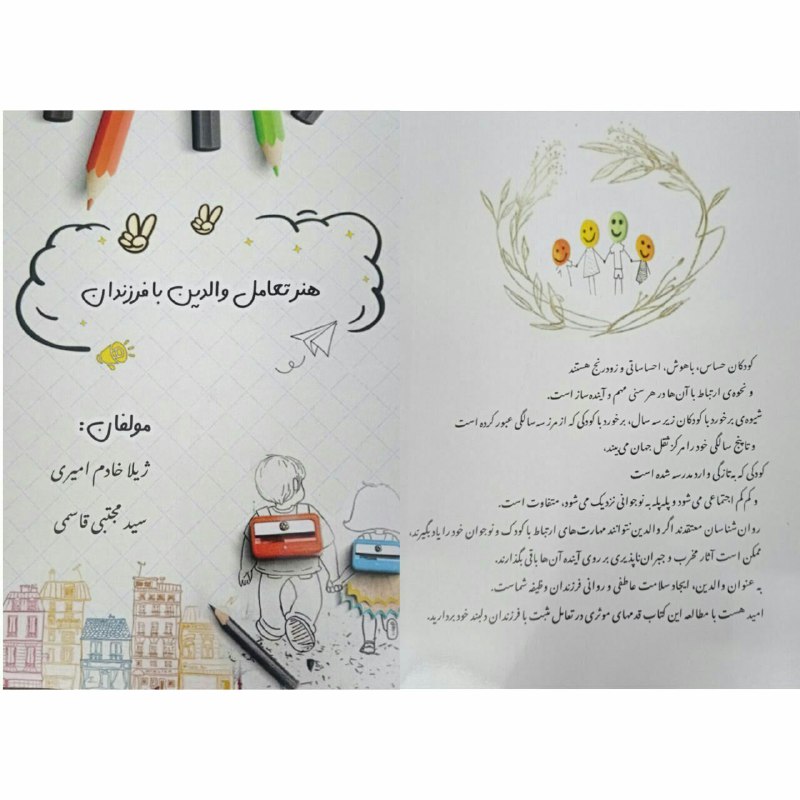 هنر تعامل والدین با فرزندان
مولفان:
ژیلا خادم امیری
سید مجتبی قاسمی
کودکان حساس، باهوش، احساساتی و زودرنج هستند
و نحوه‌ی ارتباط با آن‌ها در هر سنی مهم و آینده‌ساز است.
شیوه‌ی برخورد با کودکان زیر سه سال، برخورد با کودکی که از مرز سه سالگی عبور کرده است
و تا پنج سالگی خود را مرکز ثقل جهان می‌بیند،
کودکی که به تازگی وارد مدرسه شده است
و کم کم اجتماعی می‌شود و پله پله به نوجوانی نزدیک می‌شود، متفاوت است.
روان‌شناسان معتقدند اگر والدین نتوانند مهارت‌های ارتباط با کودک و نوجوان خود را یاد بگیرند،
ممکن است آثار مخرب و جبران‌ناپذیری بر روی آینده آن‌ها باقی بگذارند.
به عنوان والدین، ایجاد سلامت عاطفی و روانی فرزندان وظیفه شماست.
امید هست با مطالعه این کتاب قدمهای موثری در تعامل مثبت با فرزندان دلبند خود بردارید.